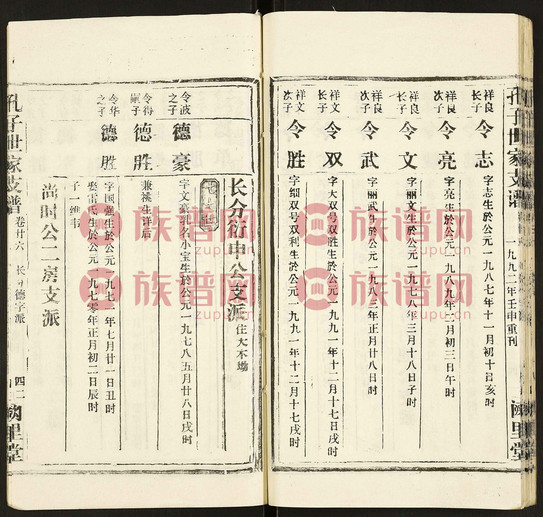 孔子世家支谱
一九九二年壬申重刊
阙里堂
祥良次子 令志 字志生於公元一九八七年十一月十七日亥时
祥良长子 令亮 字亮生於公元一九八九年二月初三日午时
祥文 令文 字丽文生於公元一九八
祥良次子 令武 字丽武生於公元一九八三年正月廿八日子时
祥文长子 令双 字大双号双胜生於公元一九九一年十二月十七日戌时
次子 令胜 字细双号双利生於公元一九九一年十二月十七日戌时
长分衍申公支派 住大木坳
令波之子 德豪 字文豪乳名小宝生於公元一九七八年五月廿八日戌时
令得嗣子 德胜 兼祧生详后
令华之子 德胜 字国强生於公元一九七一年七月廿一日丑时
娶雷氏生於公元一九七〇年正月初二日辰时
子一 维韦
尚时公二房支派
孔子世家支谱 卷廿六 长分德字派 四二 阙里堂
族谱网
zupu.cn